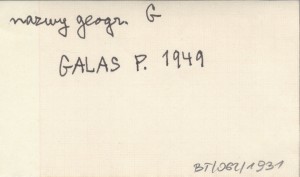 nazwy geogr. G
GALAS P. 1949
BT/262/1931